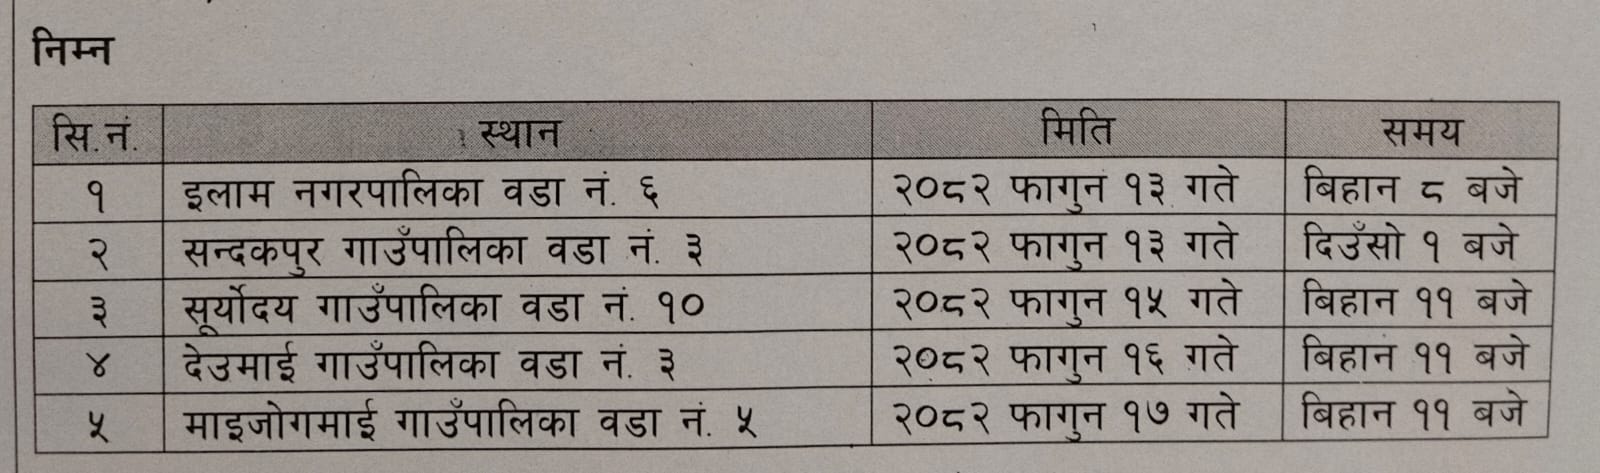 निम्न
सि.नं. स्थान मिति समय
१ इलाम नगरपालिका वडा नं. ६ २०८२ फागुन १३ गते बिहान ८ बजे
२ सन्दकपुर गाउँपालिका वडा नं. ३ २०८२ फागुन १३ गते दिउँसो १ बजे
३ सूर्योदय गाउँपालिका वडा नं. १० २०८२ फागुन १५ गते बिहान ११ बजे
४ देउमाई गाउँपालिका वडा नं. ३ २०८२ फागुन १६ गते बिहान ११ बजे
५ माइजोगमाई गाउँपालिका वडा नं. ५ २०८२ फागुन १७ गते बिहान ११ बजे